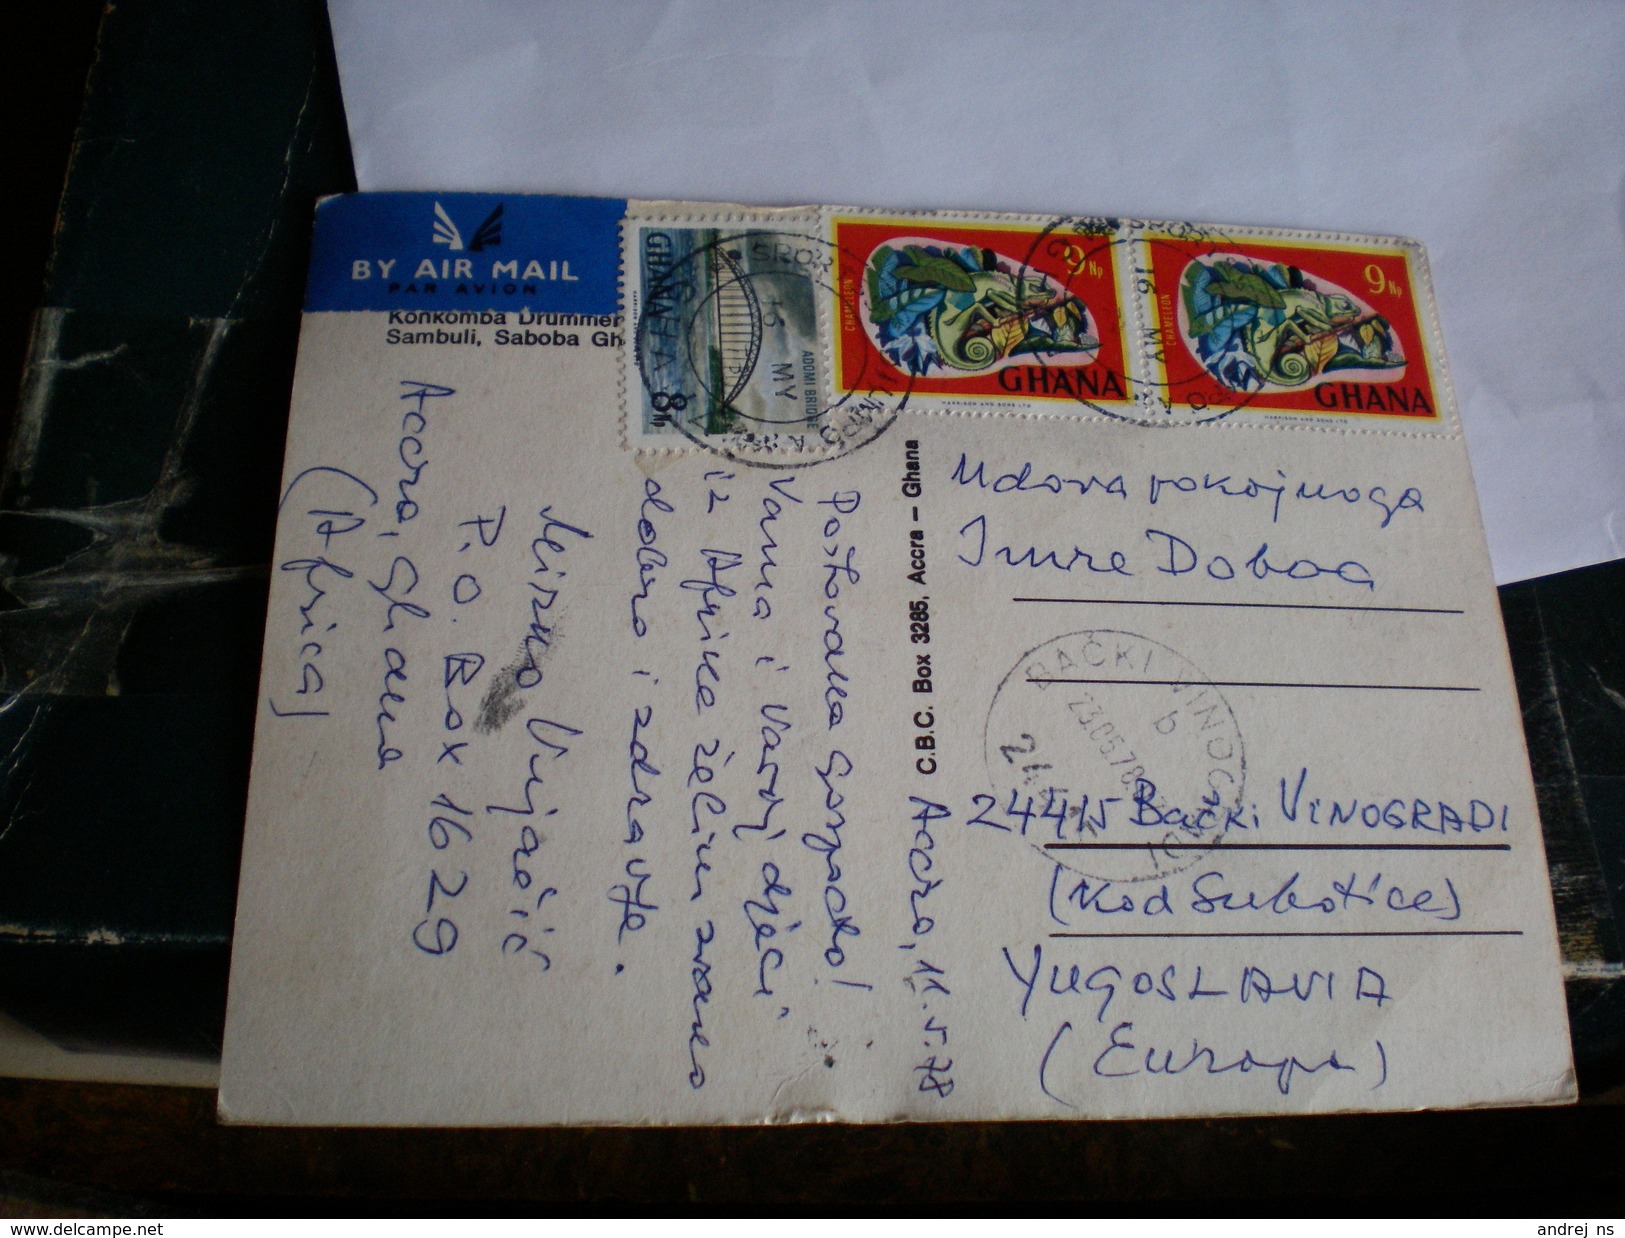 BY AIR MAIL
PAR AVION
Konkomba Drummer
Sambuli, Saboba Gh
GHANA
8 Np
ADOMI BRIDGE
16
MY
CHAMELEON
9 Np
GHANA
HARRISON AND SONS LTD
16
MY
CHAMELEON
9 Np
GHANA
HARRISON AND SONS LTD
C.B.C. Box 3285, Accra – Ghana
Accra, 11.5.78
Poštovana Gospođo!
Vama i Vašoj djeci
iz Afrike želim svako
dobro i zdravlje.
Vujačić
P.O. Box 1629
Accra, Ghana
(Africa)
Udova pokojnoga
Imre Doboa
BAČKI VINOGRADI
b
23.05.78
24415 Bački VINOGRADI
(kod Subotice)
YUGOSLAVIA
(Europa)
delcampe.net
andrej_ns